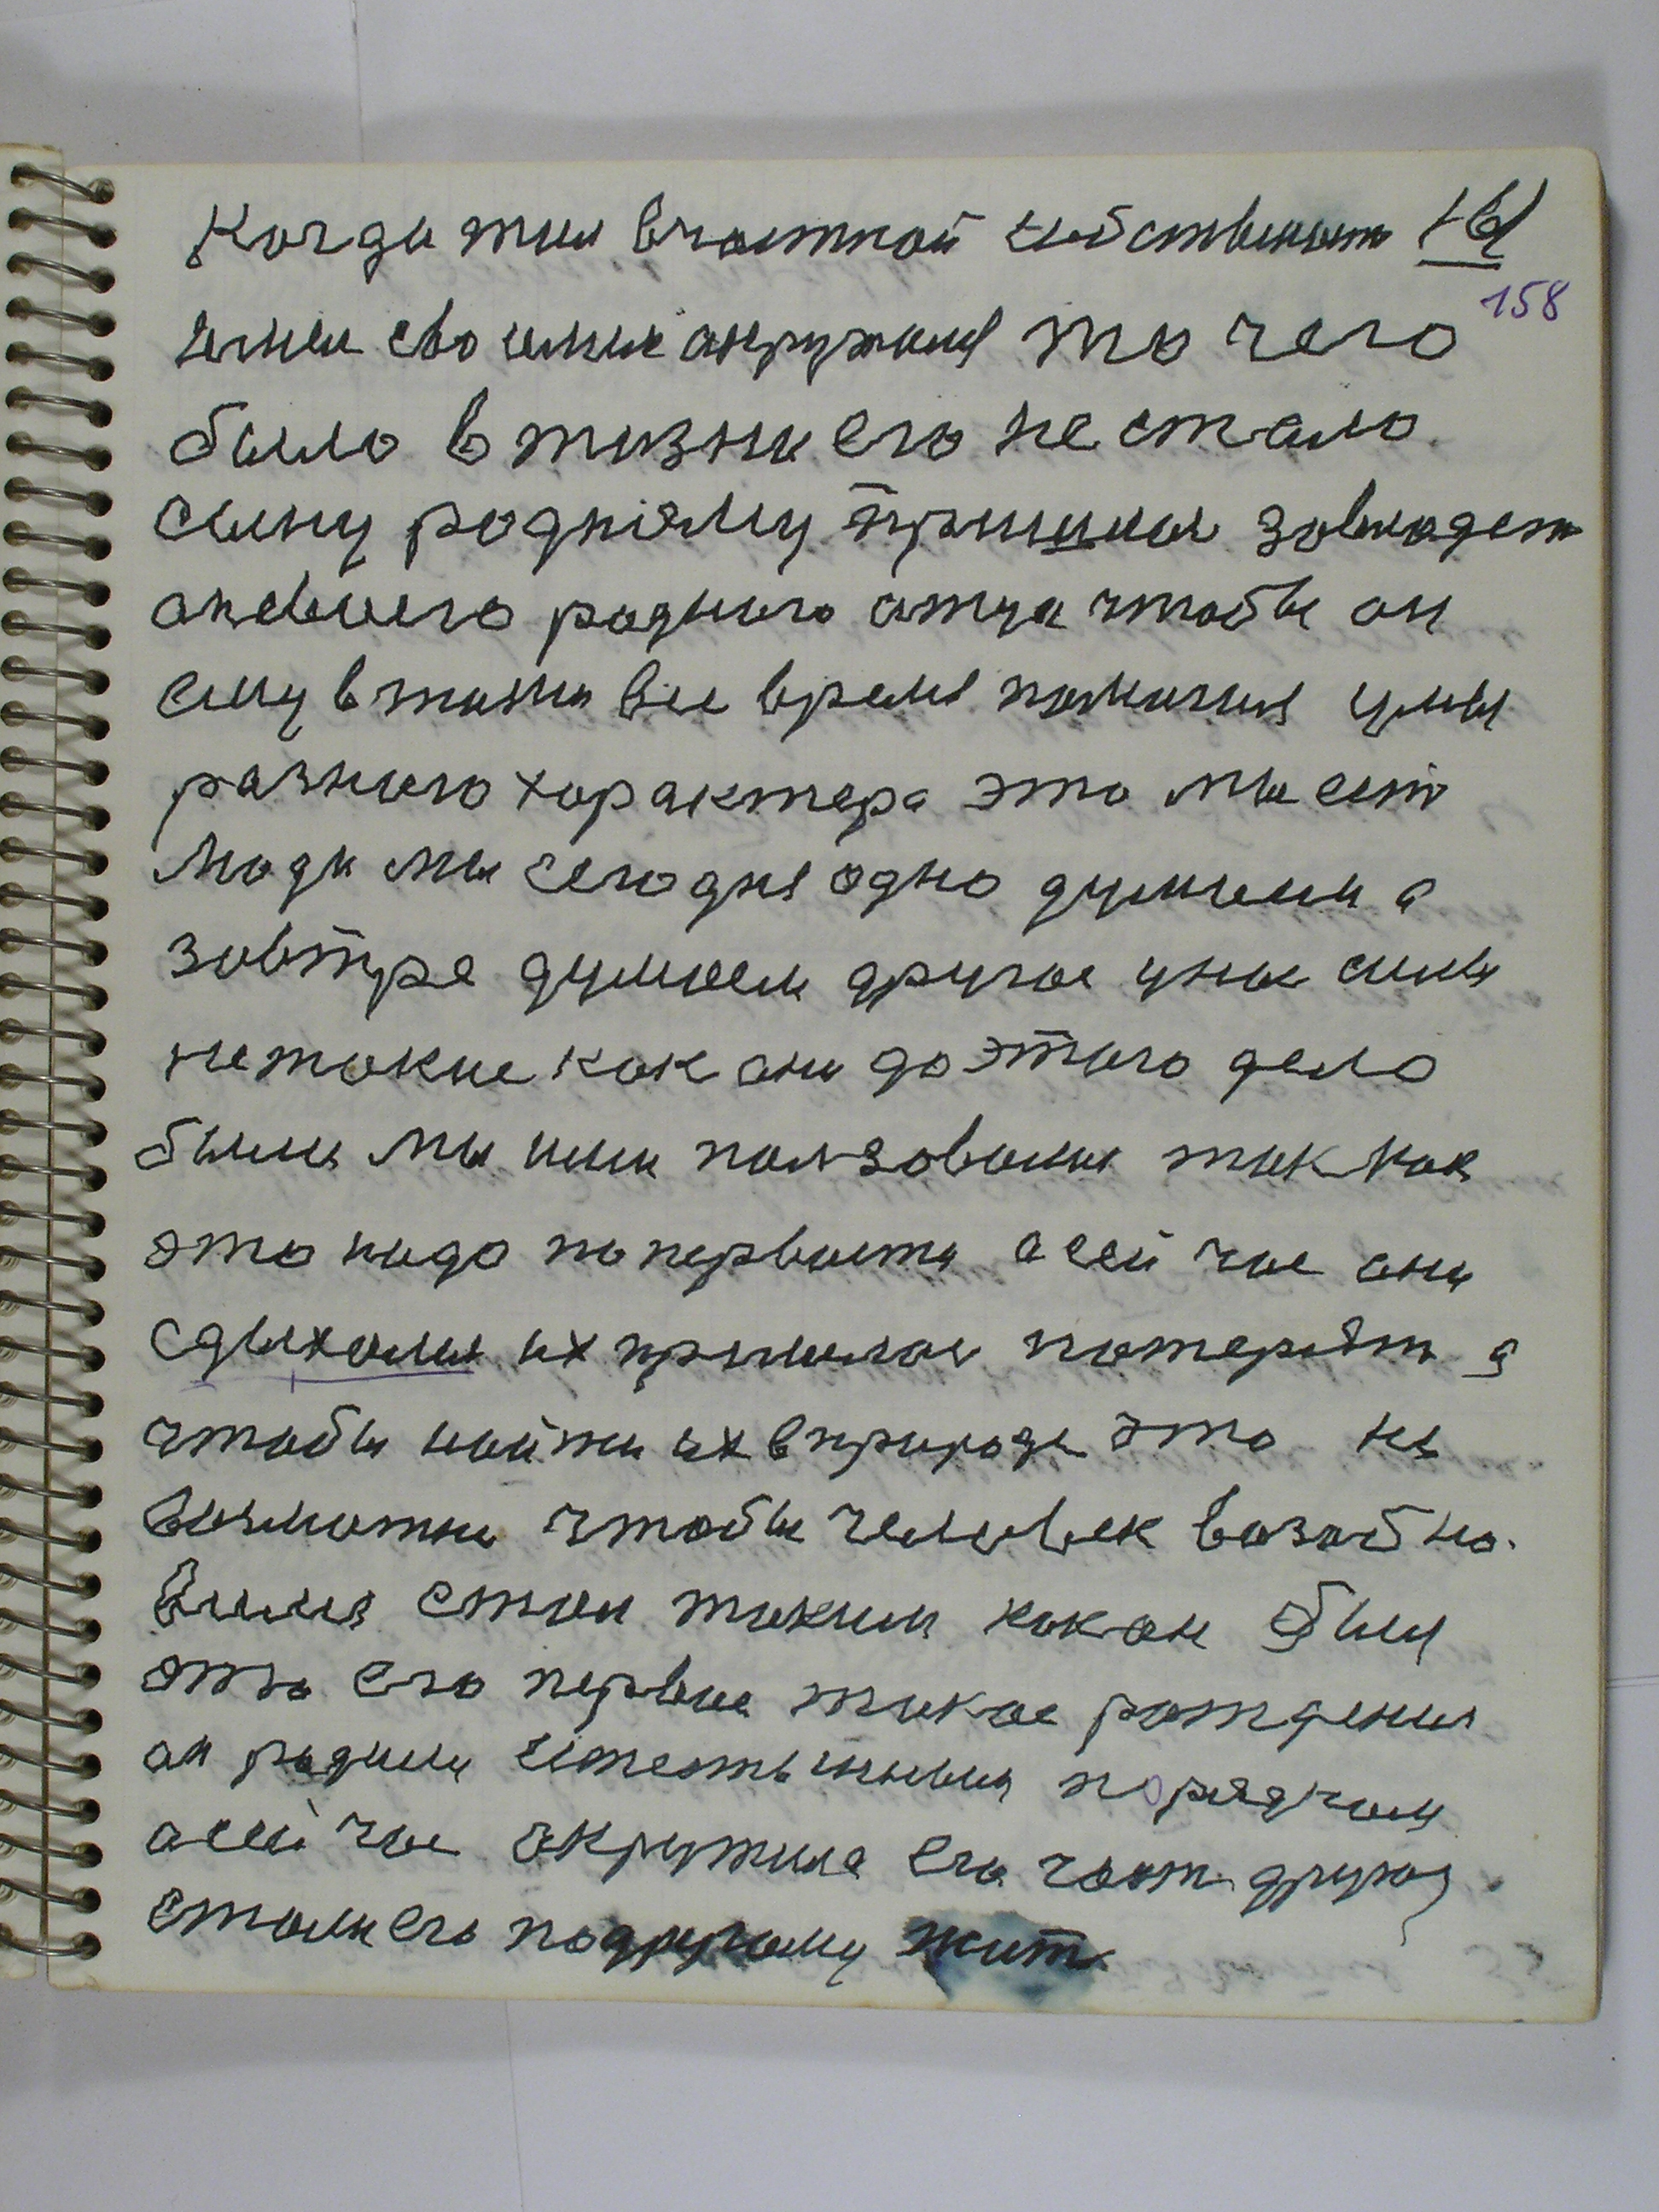 Когда жил вчастной собственност 161
158
имел своими акружался то чего
было в жизни его не стало
сыну роднаму пришлос завладет
отсвоего роднога отца чтобы он
ему в жизни все время помогал умы
разного характера это мы ест
люди мы сегодня одно думаем а
завтре думаем другое унас силы
нетакие как они до этого дела
были мы ими ползовалис так как
это надо поперваста асейчас они
сдыхалис их пришлос потерят а
чтобы найти их вприроде это не
возможна чтобы человек возабно-
вился стал таким как он был
это его первое такое рождения
он родилса естественным порядком
асейчас акружила его част другая
стали его подругому жит